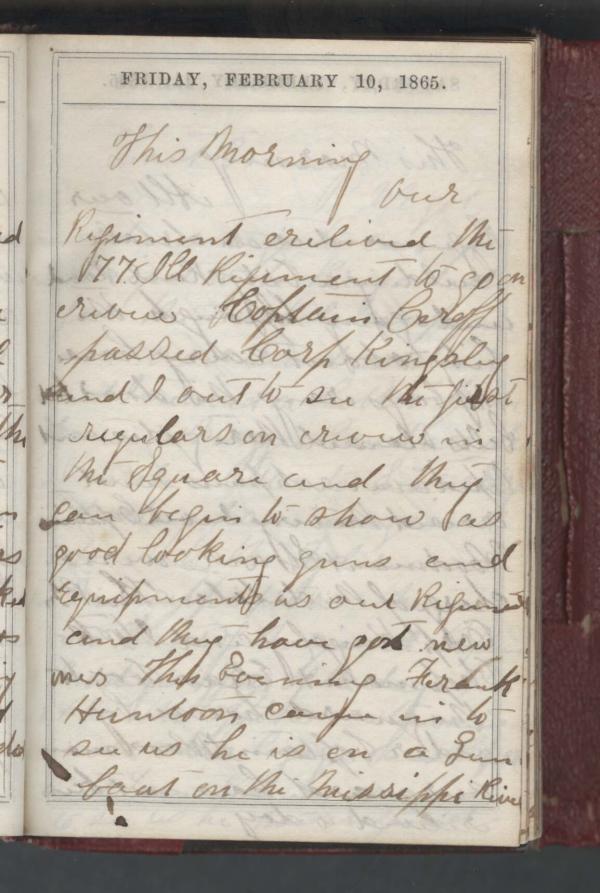 FRIDAY, FEBRUARY 10, 1865.
This Morning
our
Regiment erelieved the
77 Ill Regiment to go on
erevew Captain
passed Corp Kingsley
and I out to see the first
regulars on erevew in
the Square and they
can begin to show as
good looking guns and
Equipments as our Regiment
and they have got new
ones This Evening Frank
Huntoon came in to
see us he is on a Gun
boat on the Missippi River